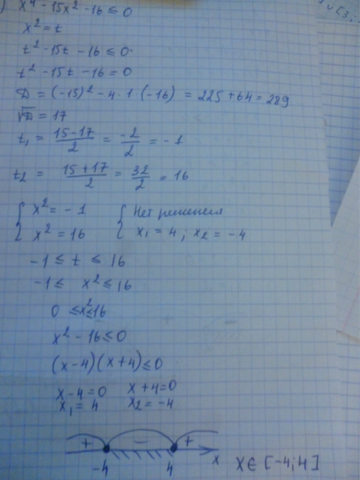 x⁴ - 15x² - 16 ≤ 0
x² = t
t² - 15t - 16 ≤ 0
t² - 15t - 16 = 0
D = (-15)² - 4 · 1 (-16) = 225 + 64 = 289
√D = 17
t₁ = (15-17)/2 = -2/2 = -1
t₂ = (15+17)/2 = 32/2 = 16
{ x² = -1 { Нет решения
{ x² = 16 { x₁ = 4 ; x₂ = -4
-1 ≤ t ≤ 16
-1 ≤ x² ≤ 16
0 ≤ x² ≤ 16
x² - 16 ≤ 0
(x-4)(x+4) ≤ 0
x-4=0 x+4=0
x₁ = 4 x₂ = -4
+ - +
-4 4 x x ∈ [-4; 4]